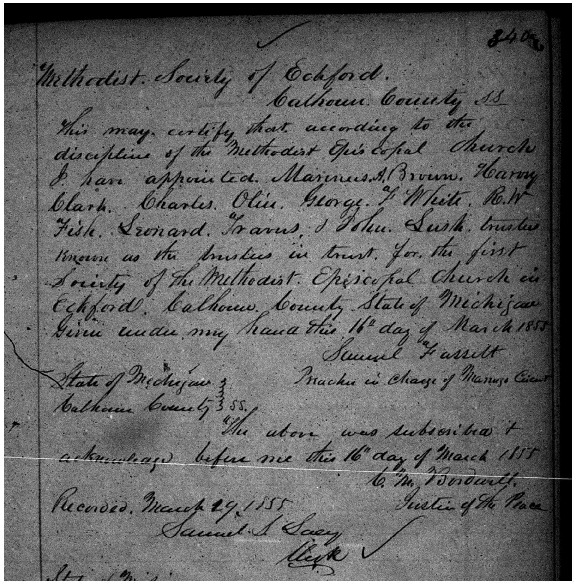 340
Methodist Society of Eckford.
Calhoun County SS
This may certify that according to the
discipline of the Methodist Episcopal Church
I have appointed Marinus A. Brown. Harvy
Clark. Charles Olin. George. F White. R. W
Fish. Leonard. Travis & John. Lusk. trustees
known as the trustees in trust. for the first
Society of the Methodist. Episcopal Church in
Eckford. Calhoun. County State of Michigan
Given under my hand this 16th day of March 1855
Samuel Fassett
Preacher in Charge of Circuit
State of Michigan
Calhoun County } SS.
The above was subscribed &
acknowledge before me this 16th day of March 1855
C. M.
Justice of the Peace
Recorded. March 29. 1855
Samuel S. Lacey
Clerk
State of